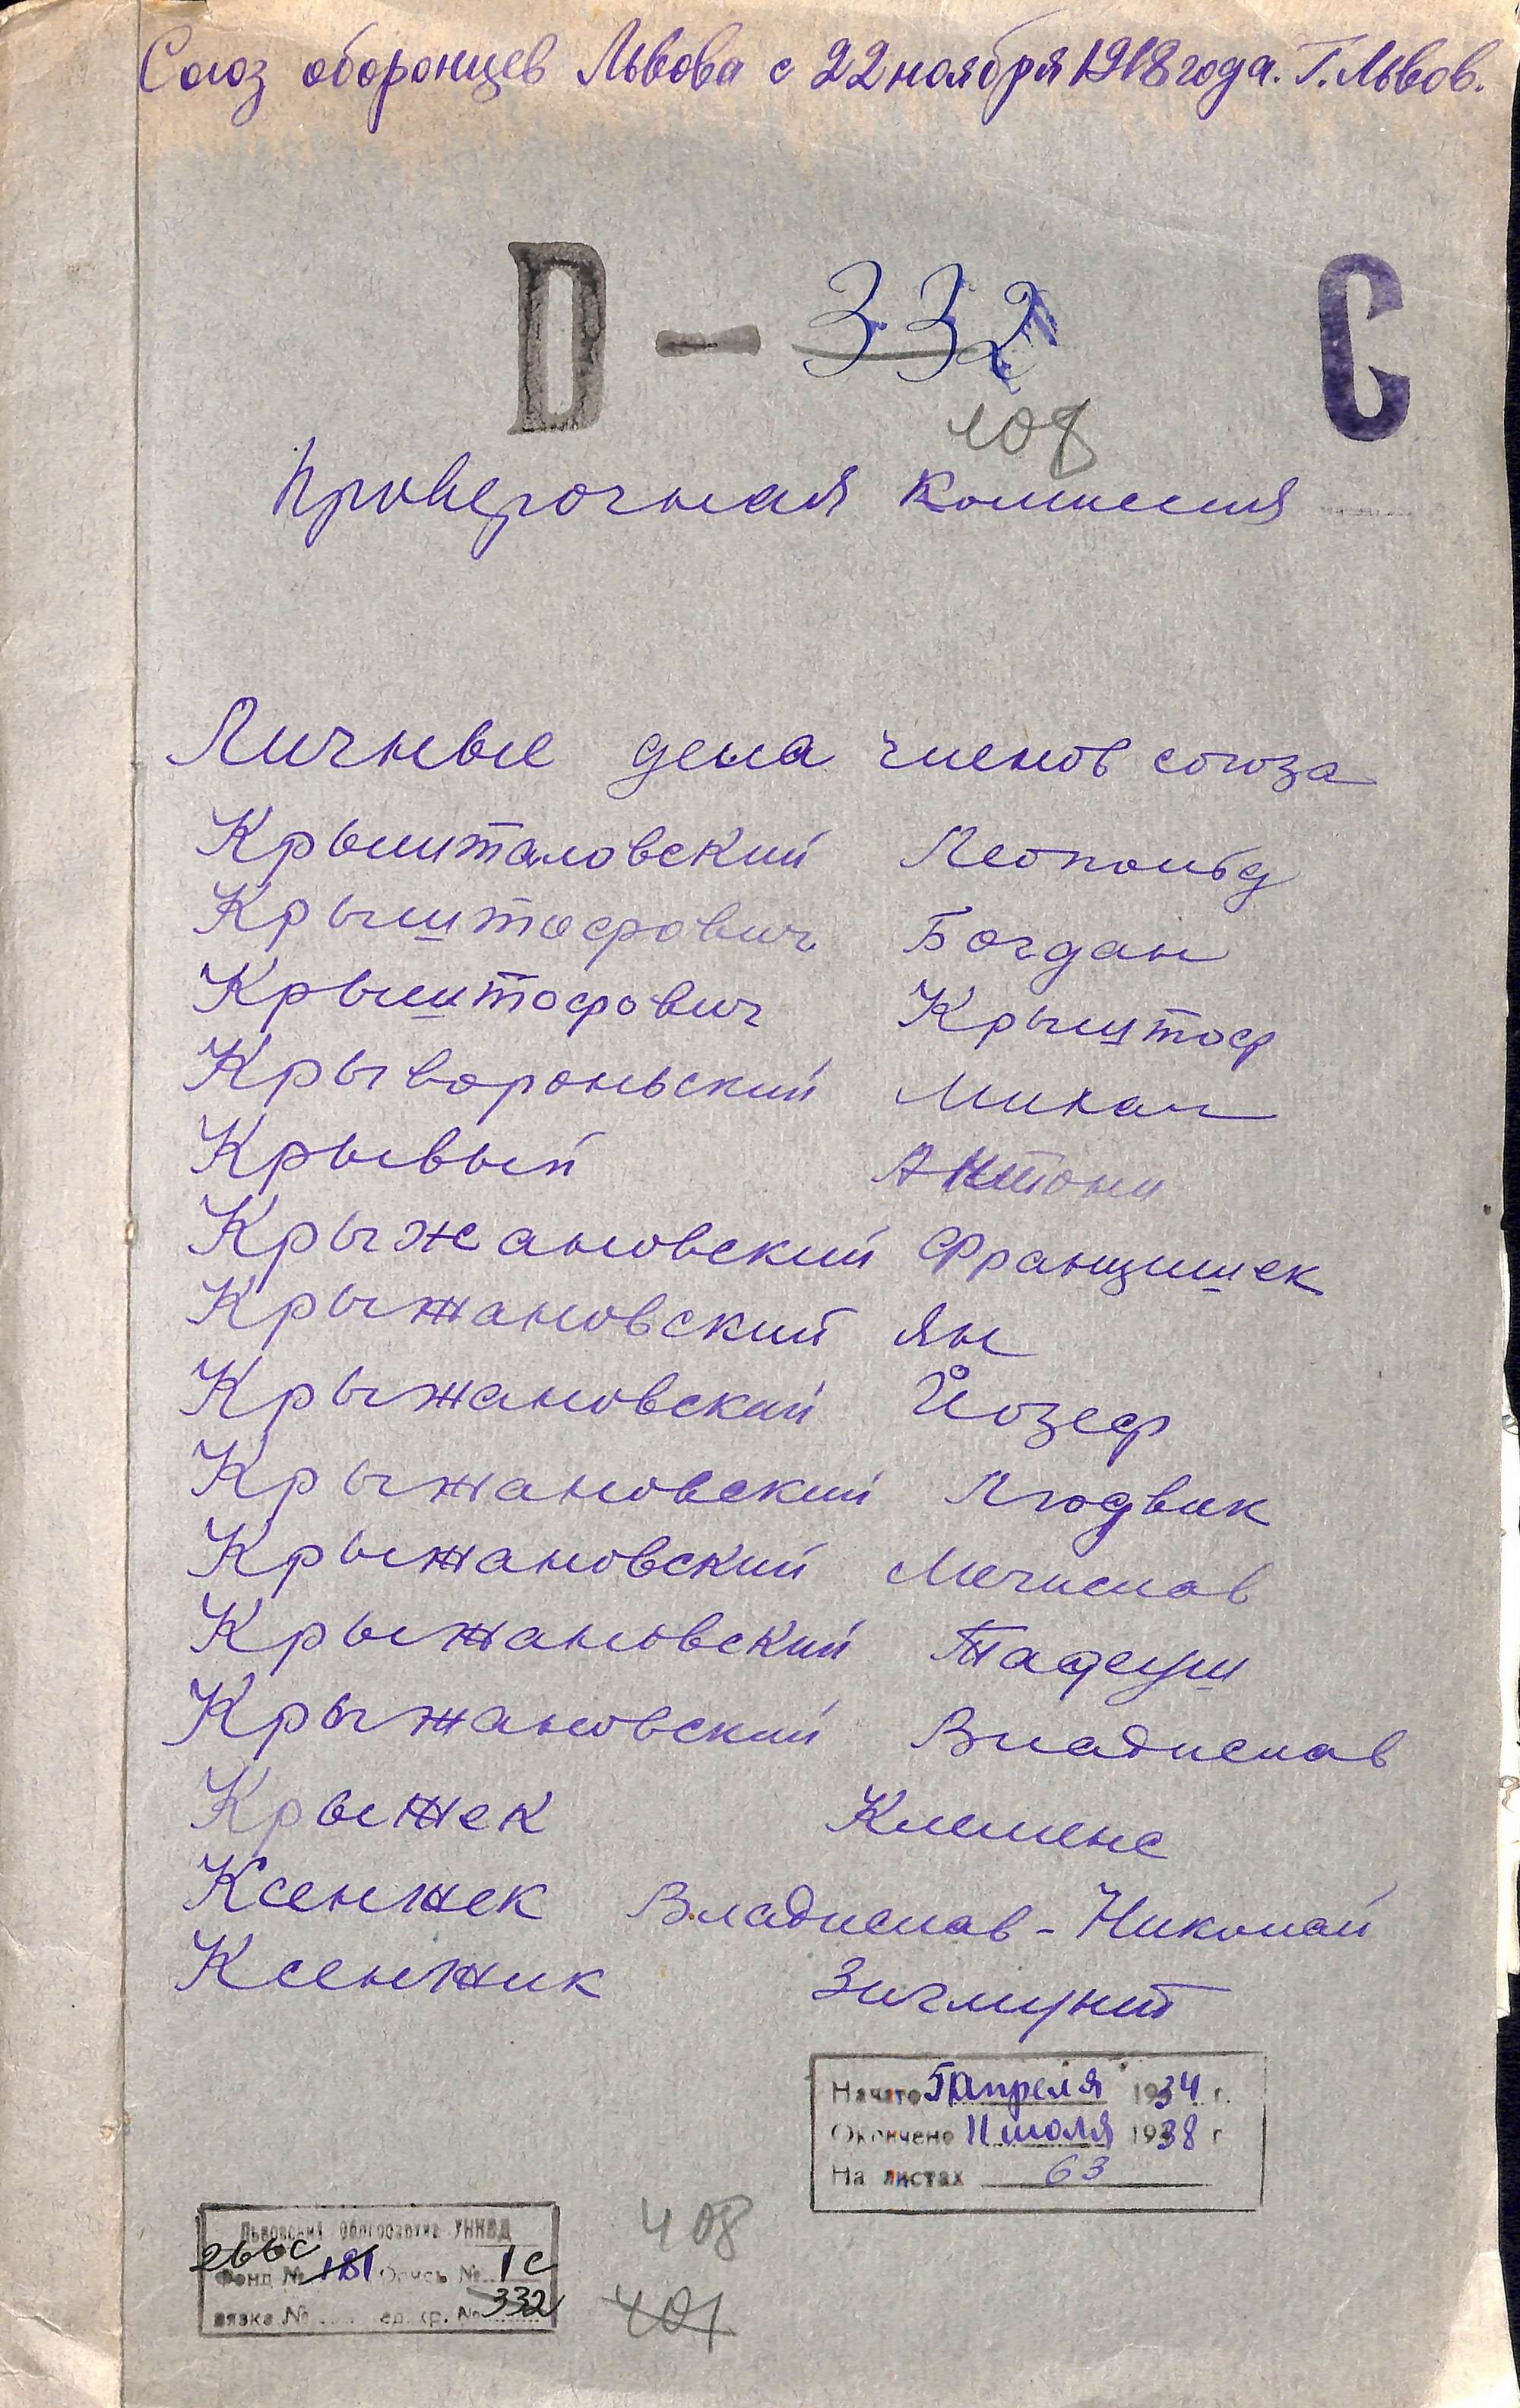 Союз оборонцев Львова с 22 ноября 1918 года. Г. Львов.
D - 332 С
108
Проверочная комиссия
Личные дела членов союза
Крышталовский Леопольд
Крыштофович Богдан
Крыштофович Крыштоф
Крывороньский Михал
Крывый Антони
Крыжановский Францишек
Крыжановский Ян
Крыжановский Йозеф
Крыжановский Людвик
Крыжановский Мечислав
Крыжановский Тадеуш
Крыжановский Владислав
Крыжек Клеменс
Ксенжек Владислав-Николай
Ксенжик Зигмунт
Начато 5 апреля 1934 г.
Окончено 11 июля 1938 г
На листах 63
408
Львовский Облгосархив УНКВД
266с
Фонд № 181 Опись № 1с
вязка № ед. хр. № 332
401